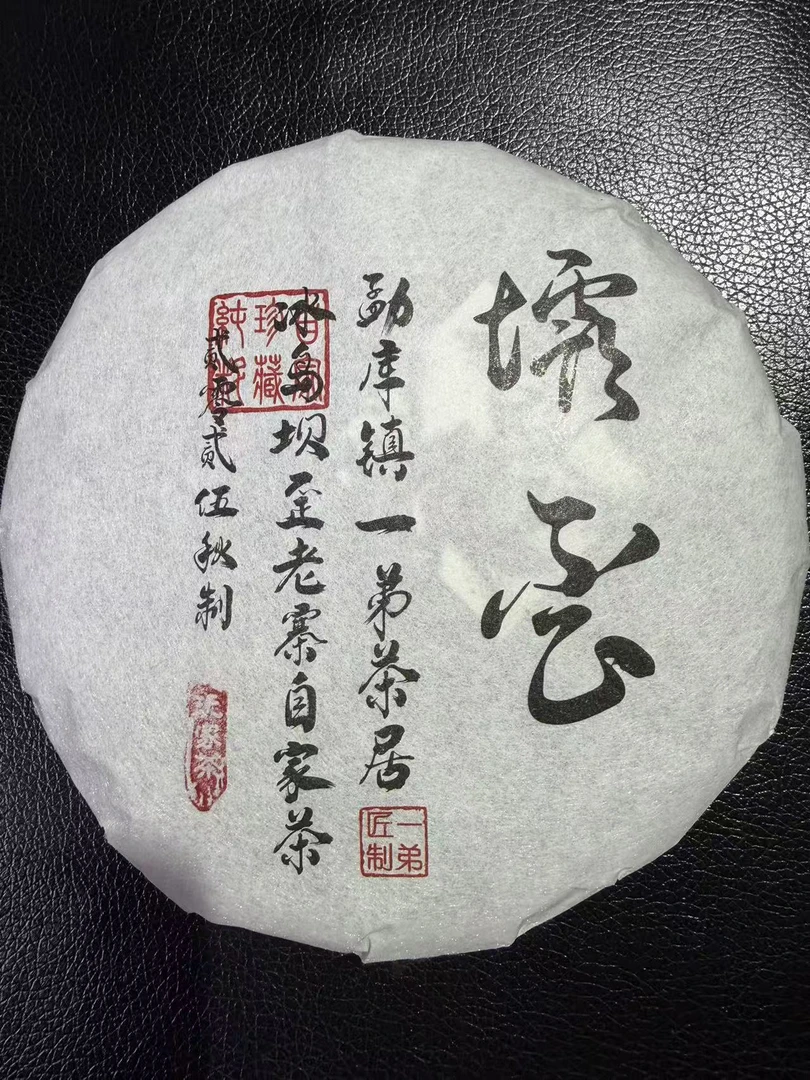 壩歪
勐库镇一弟茶居
一弟匠制
冰岛坝歪老寨自家茶
珍藏
贰零贰伍秋制